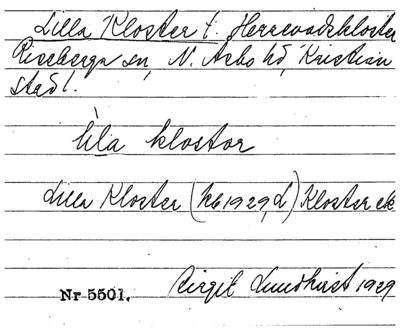 Lilla Kloster t. Herrevadskloster
Riseberga sn, N. Åsbo hd, Kristian
stad l.
lila klostor
Lilla Kloster (kb 1929, d) Kloster ek
Nr 5501. Birgit Lundkvist 1929